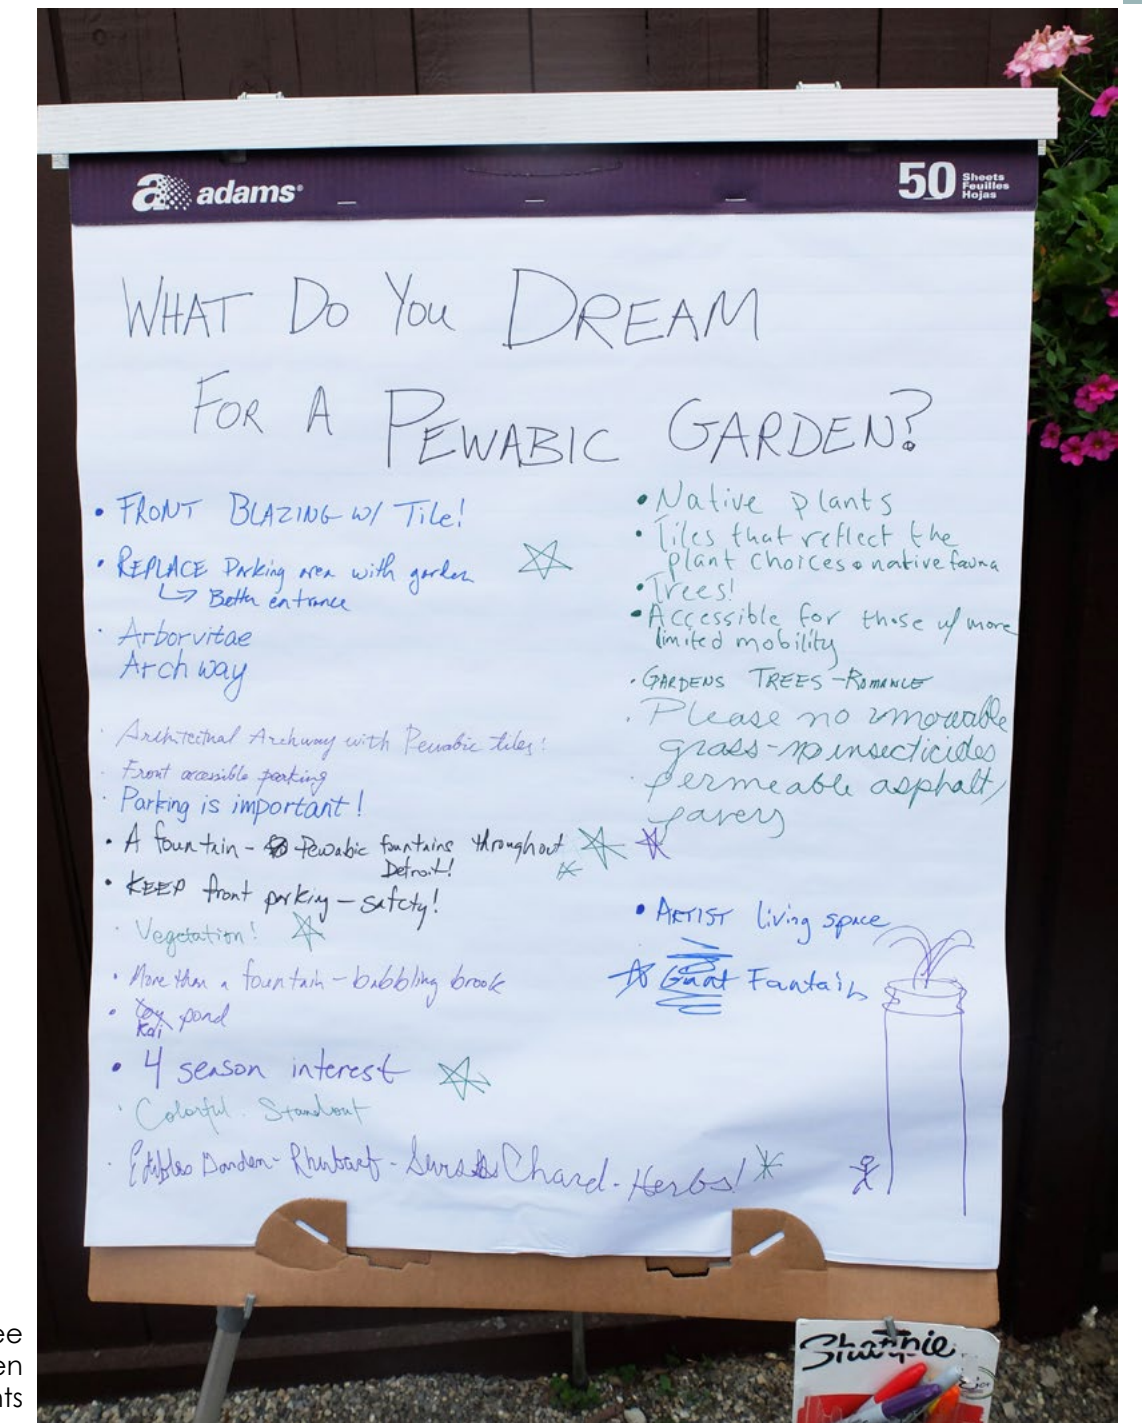 adams®
50 Sheets
Feuilles
Hojas
WHAT DO YOU DREAM
FOR A PEWABIC GARDEN?
• FRONT BLAZING W/ TILE!
• REPLACE Parking area with garden
↳ Better entrance
· Arborvitae
Archway
· Architectual Archway with Pewabic tiles!
· Front accessible parking
· Parking is important!
• A fountain - Pewabic fountains throughout
Detroit!
• KEEP front parking - safety!
· Vegetation!
• More than a fountain - bubbling brook
• Koi pond
• 4 season interest
· Colorful. Standout
· Edibles Garden - Rhubarb - Swiss Chard - Herbs!
• Native plants
• Tiles that reflect the
plant choices & native fauna
• Trees!
• Accessible for those w/ more
limited mobility
· GARDENS TREES - ROMANCE
· Please no mowable
grass - no insecticides
· permeable asphalt/
pavers
• ARTIST living space
Giant Fountain
Sharpie
ee
en
nts